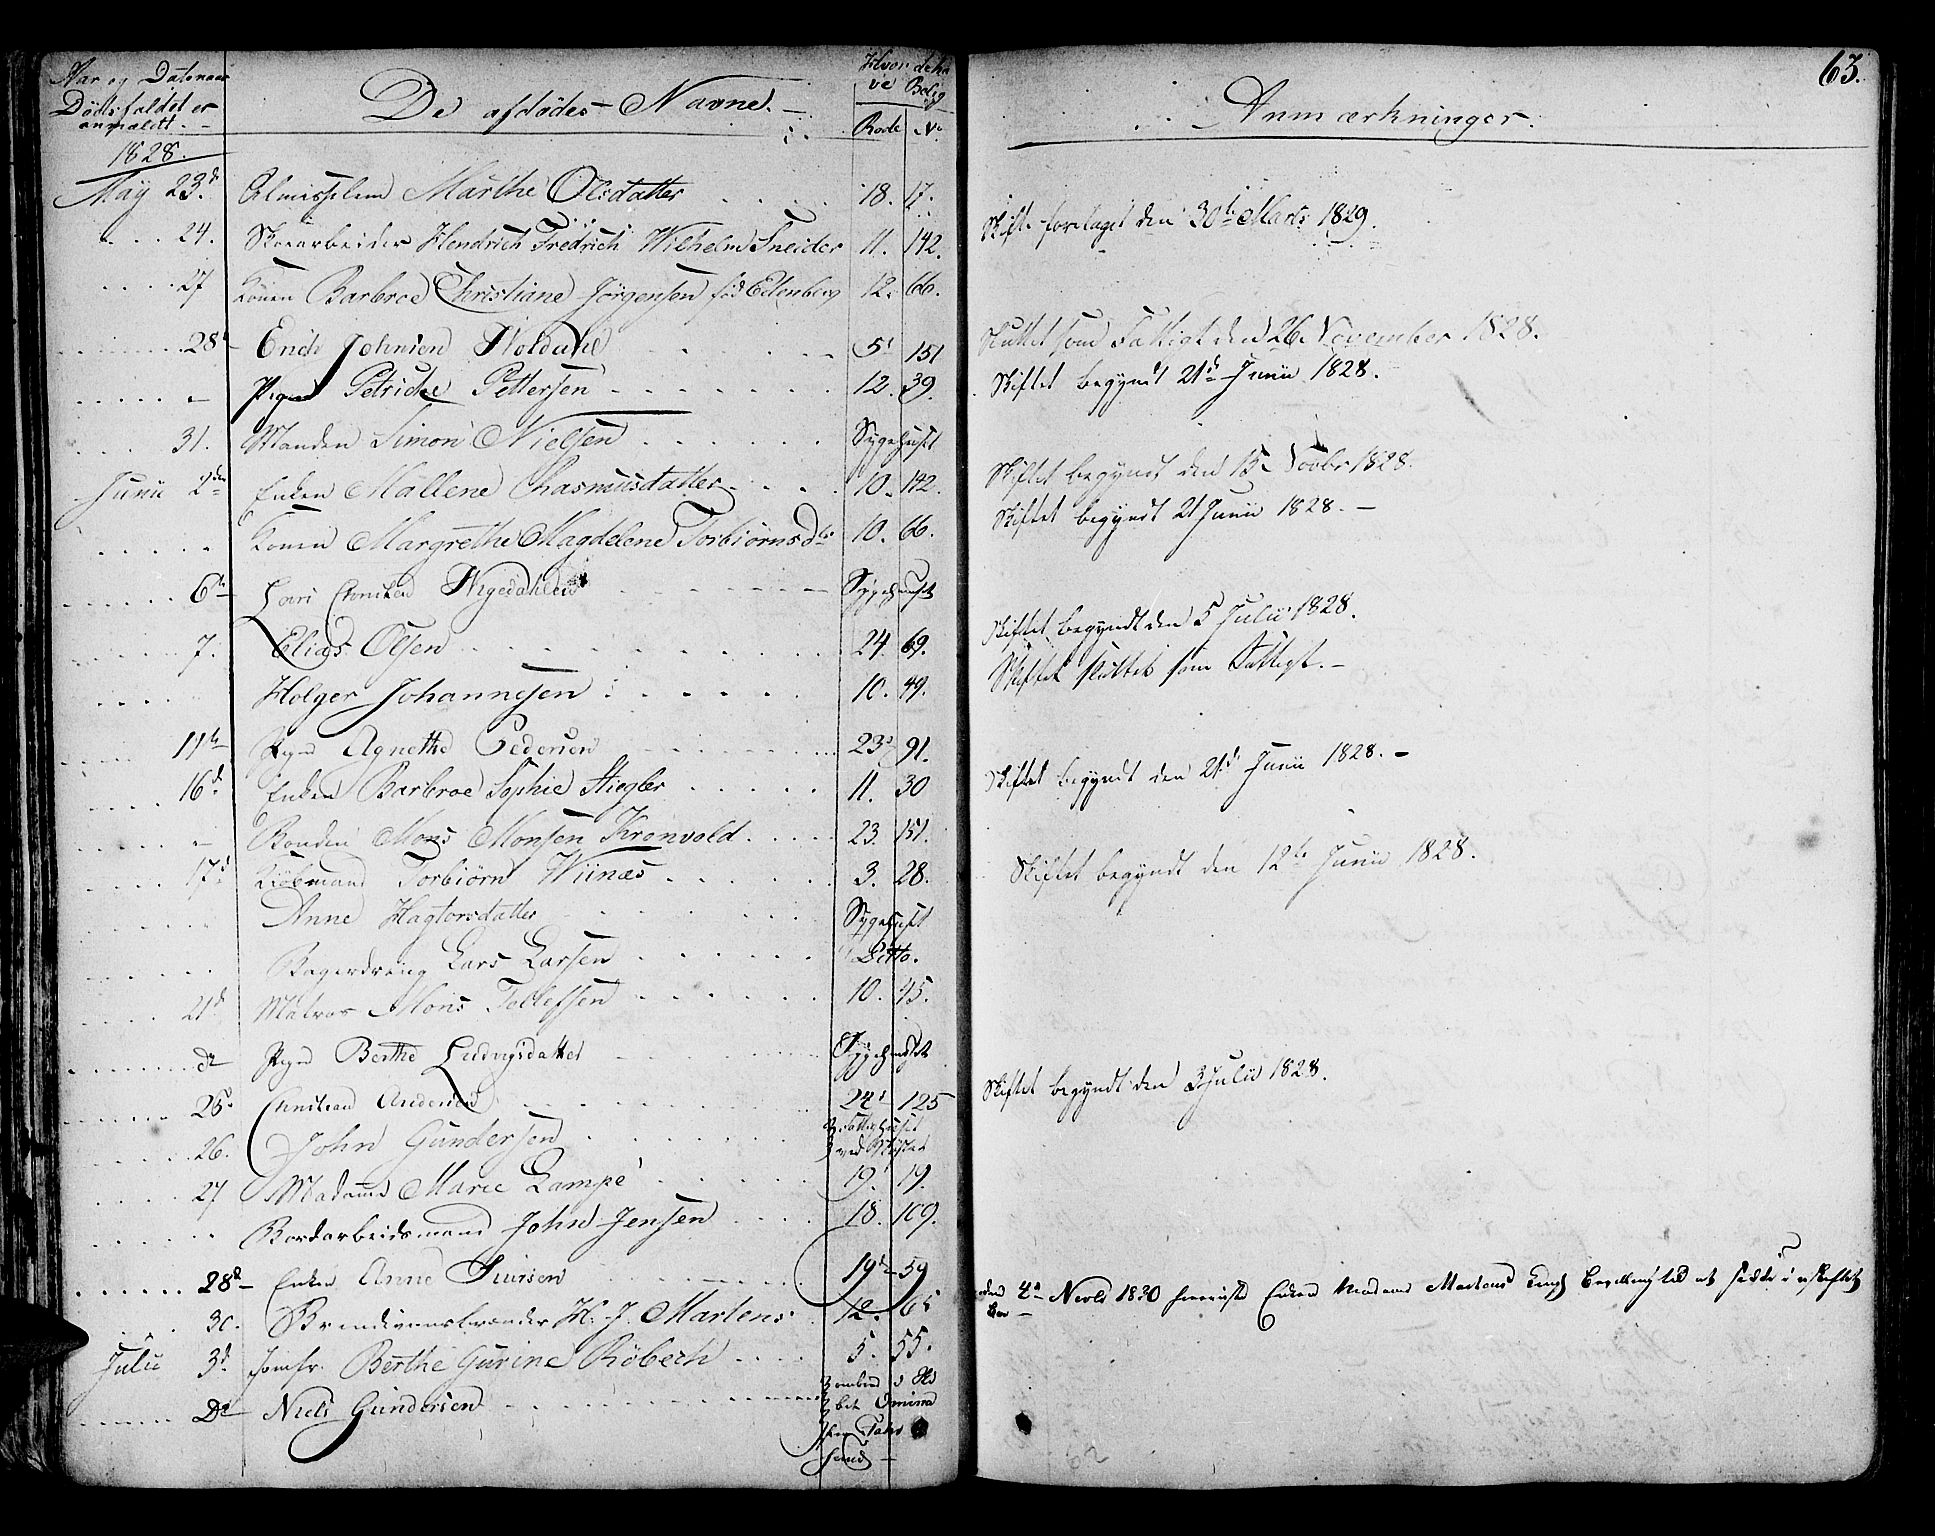 Aar og Datonaar
Dödsfaldet er
anmældt.
De afdödes Navne.
Hvor
ve Bolig
Rode No
1828.
May 23d Almisselem Marthe Olsdatter 18. 17.
24. Skoearbeider Hendrich Fredrich Wilhelm Sneider 11. 142.
27 Konen Barbroe Christiane Jörgensen föd Edenberg 12. 66.
28d Erich Johnsen Holdahl 5d 151
- Pigen Petricke Pettersen 12. 39.
31. Manden Simon Nielsen Sygehuset
Junii 2den Enken Mallene Rasmusdatter 10. 142.
Konen Margrethe Magdelene Torbiörnsdr 10. 66.
6te Lars Nygedahlen Sygehuset
7. Elias Olsen 24. 69.
Holger Johannesen 10. 49.
11te Pigen Agnethe Pedersen 23d 91.
16d Enken Barbroe Sophie Stiegler 11. 30
- Bonden Mons Monsen Krenvold 23. 151.
17d Kiöbmand Torbiörn Wiinæs 3. 28.
Anne Hagtorsdatter Sygehuset
Bagerdreng Lars Larsen Ditto.
21d Matros Mons Tollefsen 10. 45.
do Pigen Berthe Ludvigsdatter Sygehuset
25. Christian Andersen 24d 125
26. John Gundersen Fattighuset
ved
27 Madamme Marie Lampe 19. 19.
Bordarbeidsmand John Jensen 18. 109.
28d Enken Anne Siversen 19d 59
30. Brendeviinsbrænder H. J. Martens 12. 65
Julii 3d Jomfr. Berthe Gurine Röbech 5. 55.
Do Niels Gundersen
63.
Anmærkninger.
Skifte foretaget den 30te Marts 1829.
Sluttet som Fattigt den 26 November 1828.
Skiftet begyndt 21de Junii 1828.
Skiftet begyndt den 15 Novbr 1828.
Skiftet begyndt 21 Junii 1828. -
Skiftet begyndt den 5 Julii 1828.
Skiftet sluttet som Fattigt. -
Skiftet begyndt den 21d Junii 1828. -
Skiftet begyndt den 12te Junii 1828.
Skiftet begyndt den 3 Julii 1828.
den 4de 1830 Enken Madame Martens Bevilling til at sidde i uskiftet
Boe -